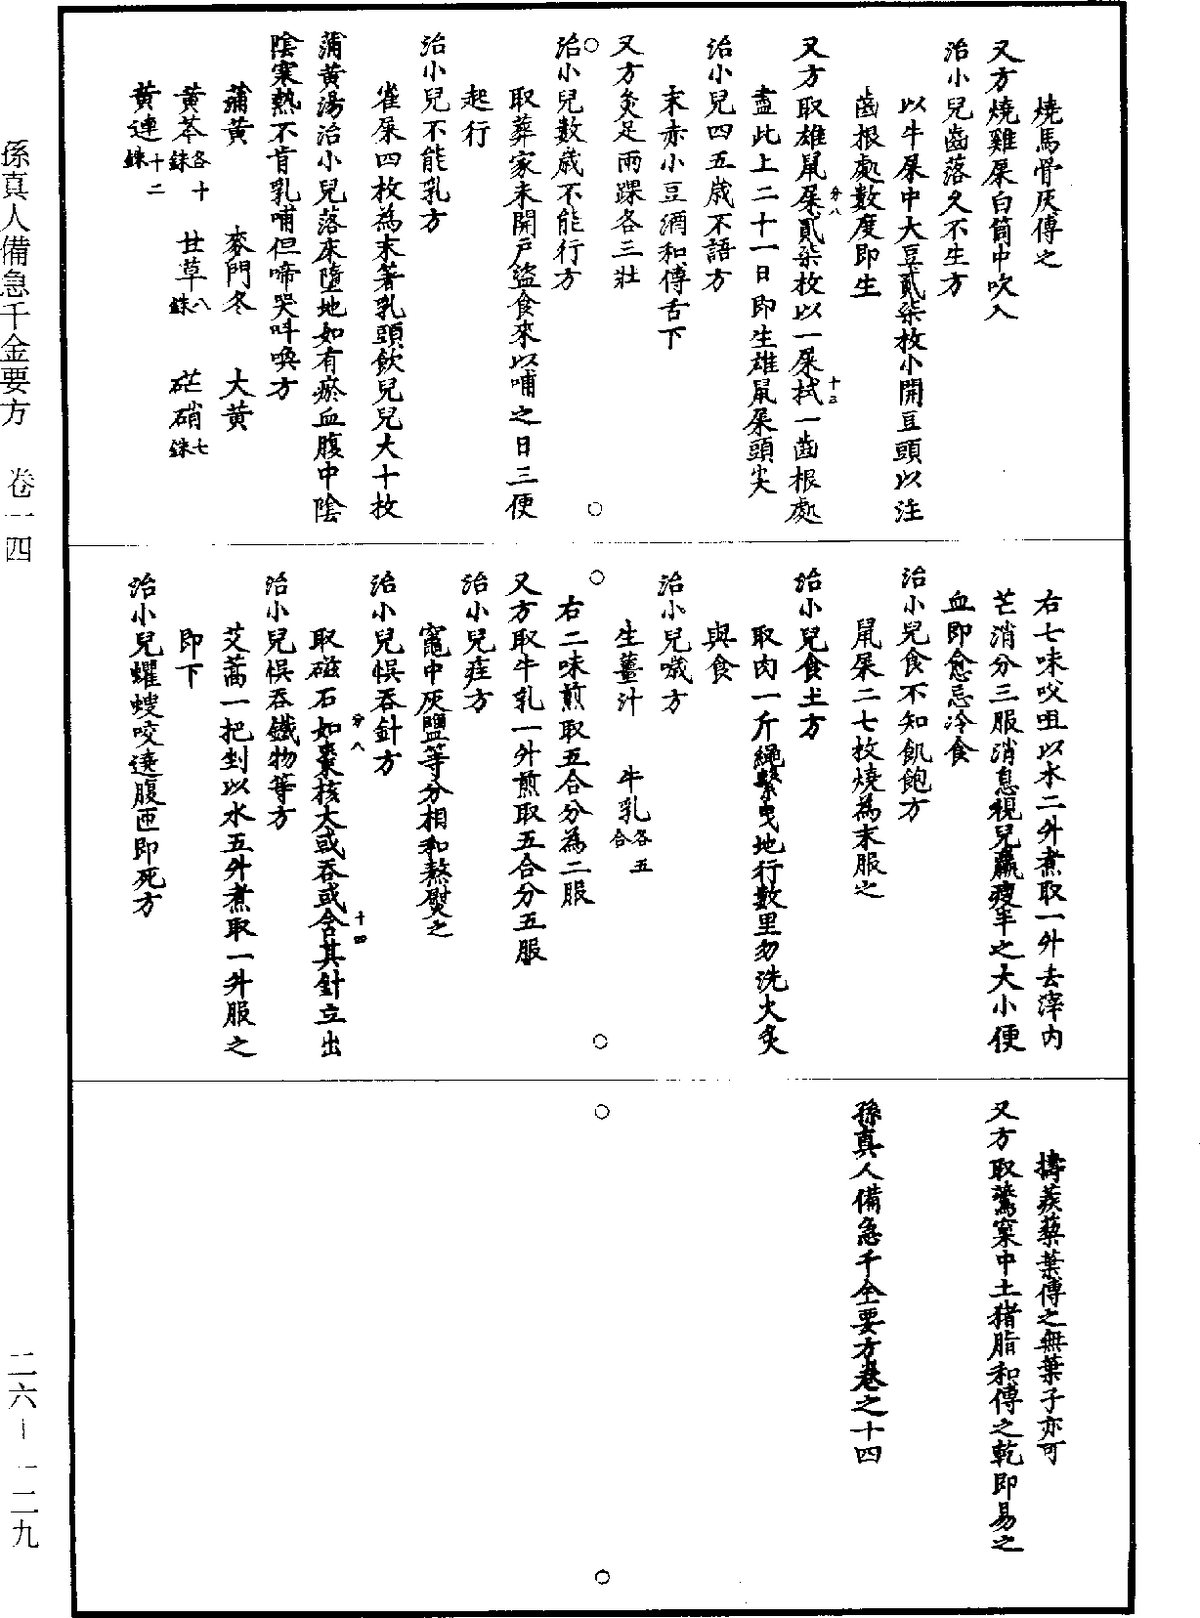 燒馬骨灰傅之
又方燒雞屎白筒中吹入
治小兒齒落久不生方
以牛屎中大豆貳柒枚小開豆頭以注
齒根處數度即生
又方取雄鼠屎貳柒枚以一屎拭一齒根處
盡此上二十一日即生雄鼠屎頭尖
治小兒四五歲不語方
末赤小豆酒和傅舌下
又方灸足兩踝各三壯
治小兒數歲不能行方
取葬家未開戶盜食來以哺之日三便
起行
治小兒不能乳方
雀屎四枚為末著乳頭飲兒兒大十枚
蒲黃湯治小兒落床墮地如有瘀血腹中陰
陰寒熱不肯乳哺但啼哭叫喚方
蒲黃 麥門冬 大黃
黃芩各十銖 甘草八銖 芒硝七銖
黃連十二銖
右七味㕮咀以水二升煮取一升去滓內
芒消分三服消息視兒羸瘦半之大小便
血即愈忌冷食
治小兒食不知飢飽方
鼠屎二七枚燒為末服之
治小兒食土方
取肉一斤繩繫曳地行數里勿洗火炙
與食
治小兒噦方
生薑汁 牛乳各五合
右二味煎取五合分為二服
又方取牛乳一升煎取五合分五服
治小兒疰方
竈中灰鹽等分相和熬熨之
治小兒悮吞針方
取磁石如棗核大或吞或含其針立出
治小兒悮吞鐵物等方
艾蒿一把剉以水五升煮取一升服之
即下
治小兒蠷螋咬遶腹匝即死方
擣蒺蔾葉傅之無葉子亦可
又方取鷰窠中土猪脂和傅之乾即易之
孫真人備急千金要方卷之十四
分八
十三
分八
十四
孫真人備急千金要方 卷一四
二六－一二九